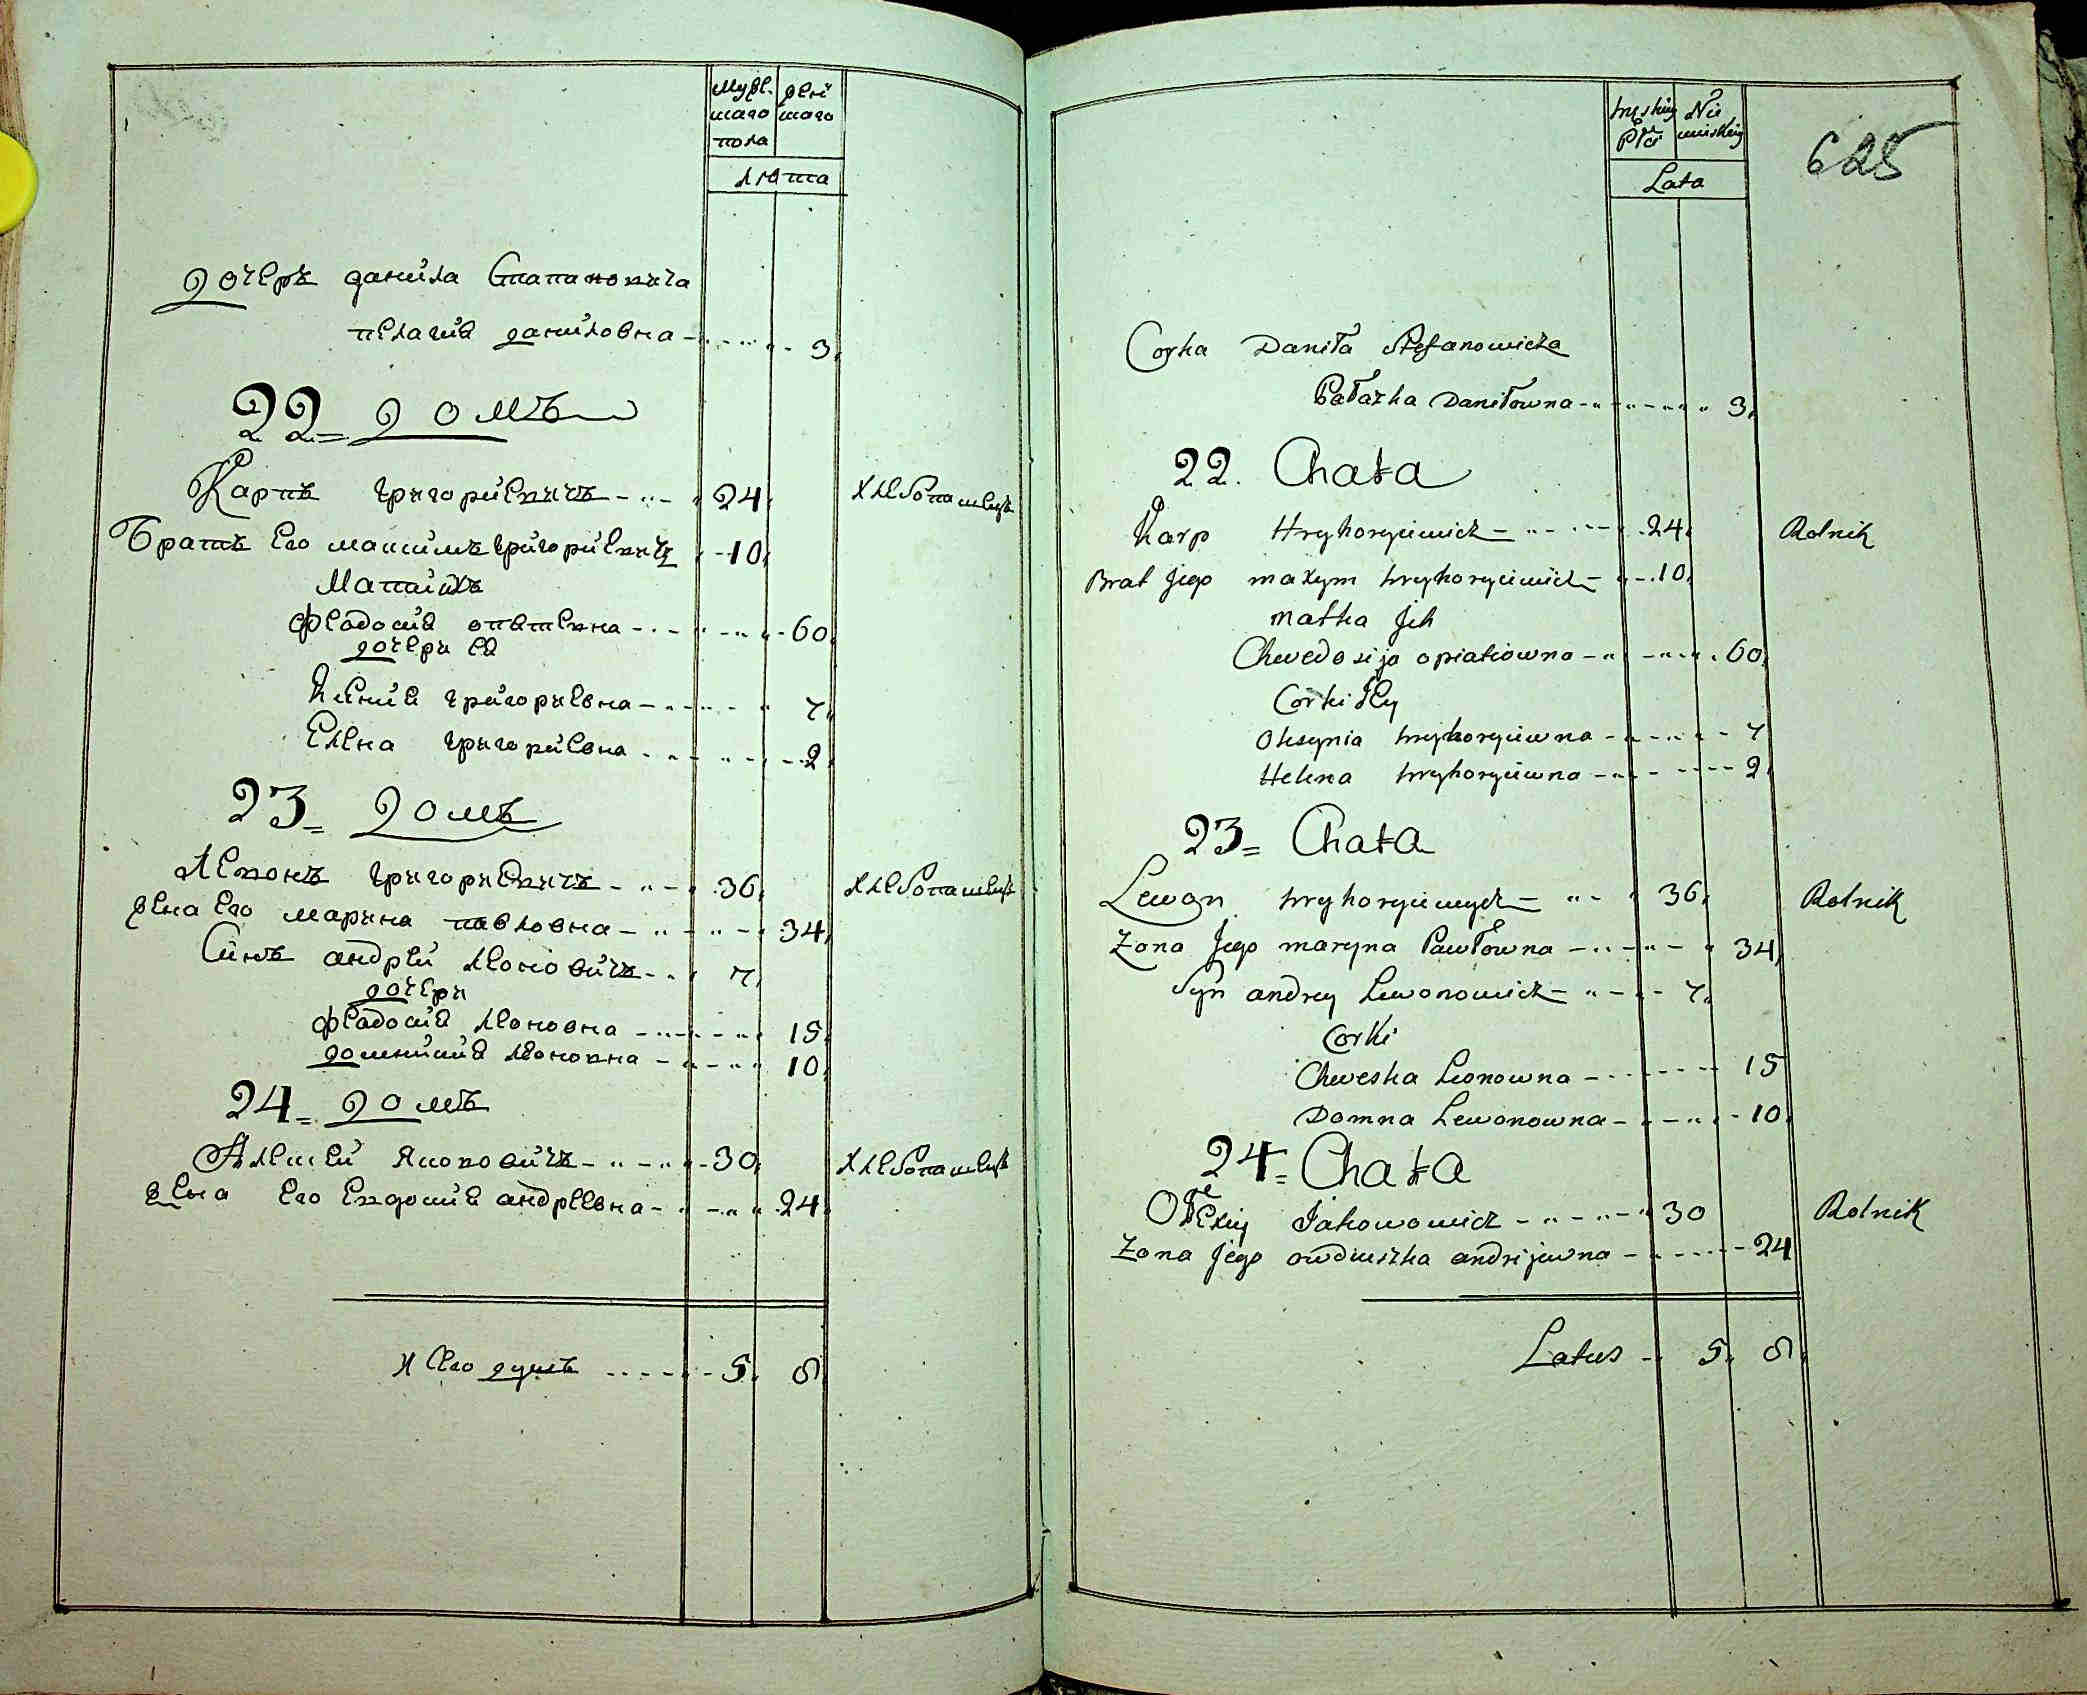 Мужеского пола
женского
Лѣта
дочеръ данила Стапановича
пелагия даниловна 3
22 домъ
Карпъ григориевичъ 24 хлебопашецъ
Братъ Его максимъ григориевичъ 10
Мать ихъ
феодосия 60
дочери Ея
григориевна 7
Елена григориевна 2
23 домъ
Левонъ григориевичъ 36 хлебопашецъ
жена Его марина павловна 34
Синъ андрей Леоновичъ 7
дочери
феодосия Леоновна 15
домникия Леоновна 10
24 домъ
Алексей Яковович 30 хлебопашецъ
жена Его Евдокия андреевна 24
душъ 5 8
625
męskiey Płci
Nie wieskiey
Lata
Corka Daniła Stefanowicza
Pałazka Daniłowna 3
22. Chata
Karp Hryhoryiewicz 24 Rolnik
Brat Jego maxym hryhoryiewicz 10
matka Jch
Chwedosija opiatiowna 60
Corki Jey
Oksynia hryhoryiewna 7
Helena hryhoryiewna 2
23 Chata
Lewon hryhoryiewycz 36 Rolnik
Zona Jego maryna Pawłowna 34
Syn andrey Lewonowicz 7
Corki
Chweska Leonowna 15
Domna Lewonowna 10
24 Chata
Ołexiy Jakowowicz 30 Rolnik
Zona Jego owdiuszka andrijewna 24
Latus 5 8